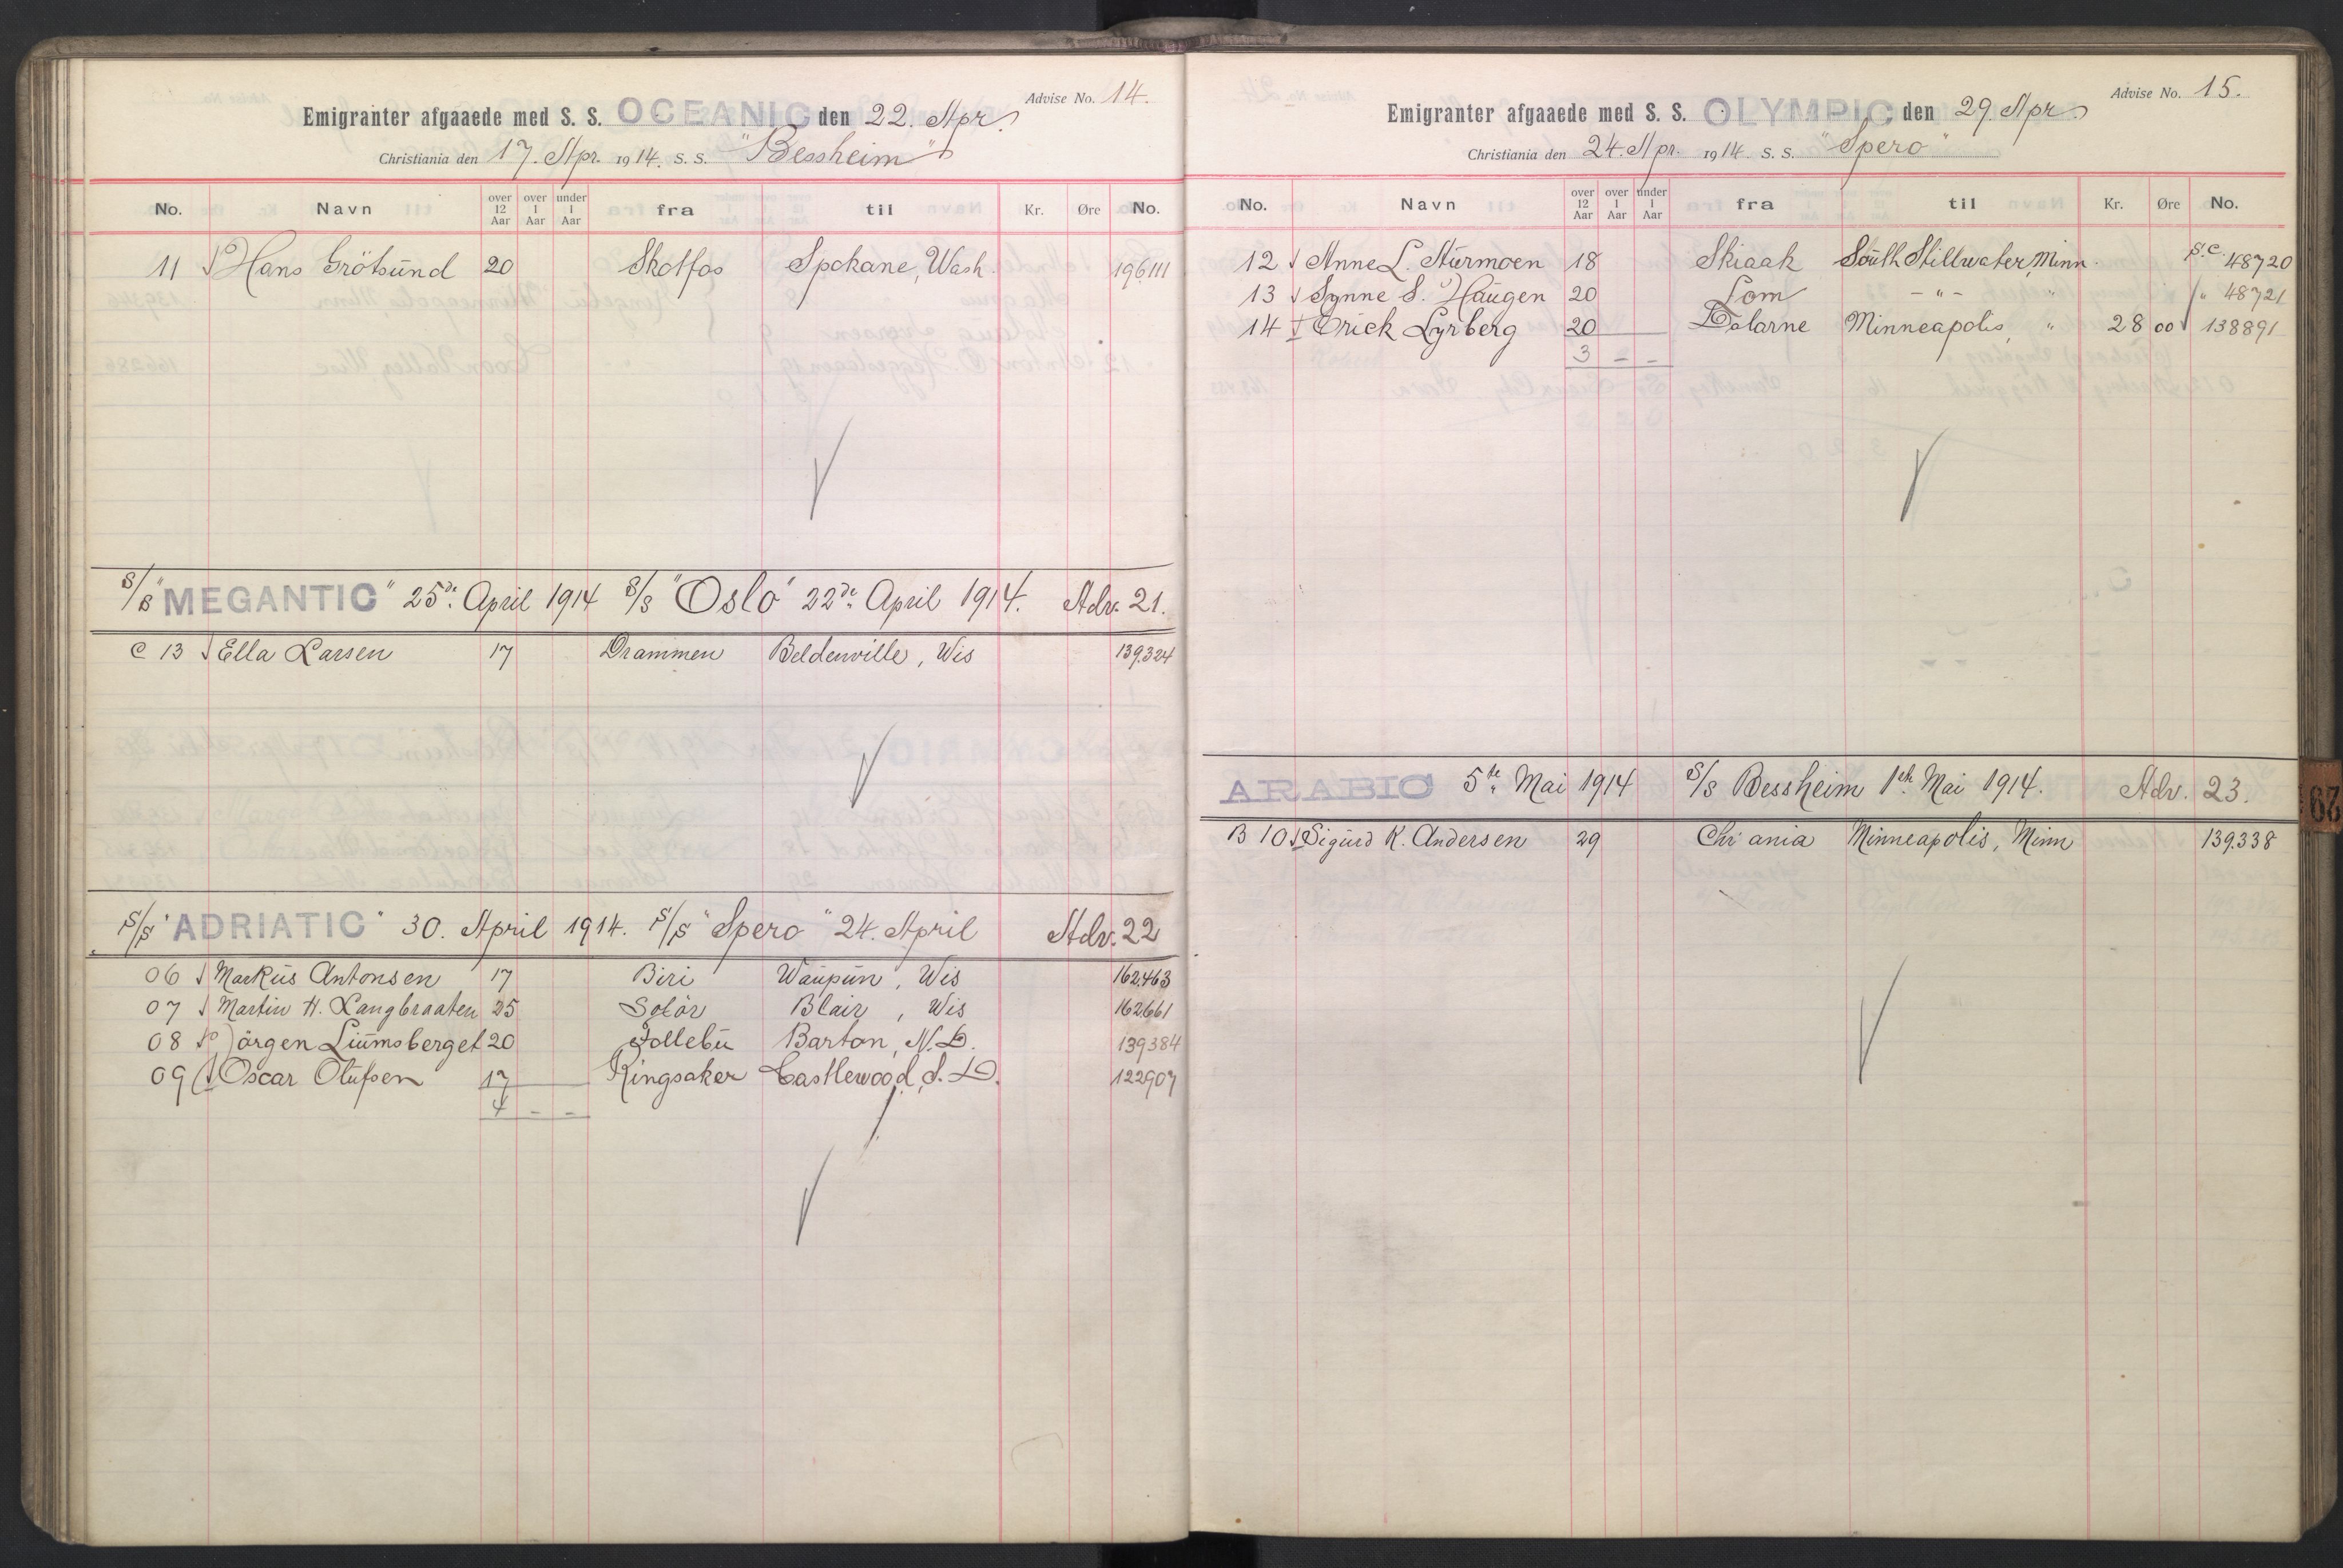 Advise No. 14.
Emigranter afgaaede med S. S. OCEANIC den 22. Apr.
Christiania den 17. Apr. 1914. S. S. "Bessheim"
No. Navn over 12 Aar over 1 Aar under 1 Aar fra til Kr. Øre No.
11 Hans Grötsund 20 Skotfos Spokane, Wash. 196111
S/S "MEGANTIC" 25de April 1914 S/S "Oslo" 22de April 1914. Adv. 21.
C 13 Ella Larsen 17 Drammen Beldenville, Wis 139.324
S/S "ADRIATIC" 30. April 1914. S/S "Spero" 24. April Adv. 22
06 Markus Antonsen 17 Biri Waupun, Wis 162.463
07 Martin H. Langbraaten 25 Solör Blair, Wis 162661
08 Jörgen Liumsberget 20 Follebu Barton, N. D. 139384
09 Oscar Olufsen 17 Ringsaker Castlewood, S. D. 122907
4 - -
Advise No. 15.
Emigranter afgaaede med S. S. OLYMPIC den 29. Apr.
Christiania den 24. Apr. 1914 S. S. "Spero"
No. Navn over 12 Aar over 1 Aar under 1 Aar fra til Kr. Øre No.
12 Anne L. Sturmoen 18 Skiaak South Stillwater, Minn. S.C. 48720
13 Synne S. Haugen 20 Lom - " - " " 48721
14 Erick Lyrberg 20 Dalarne Minneapolis, " 28 00 138891
3 - -
ARABIC 5te Mai 1914 S/S Bessheim 1ste Mai 1914. Adv. 23.
B 10 Sigurd K. Andersen 29 Chr ania Minneapolis, Minn 139.338
29